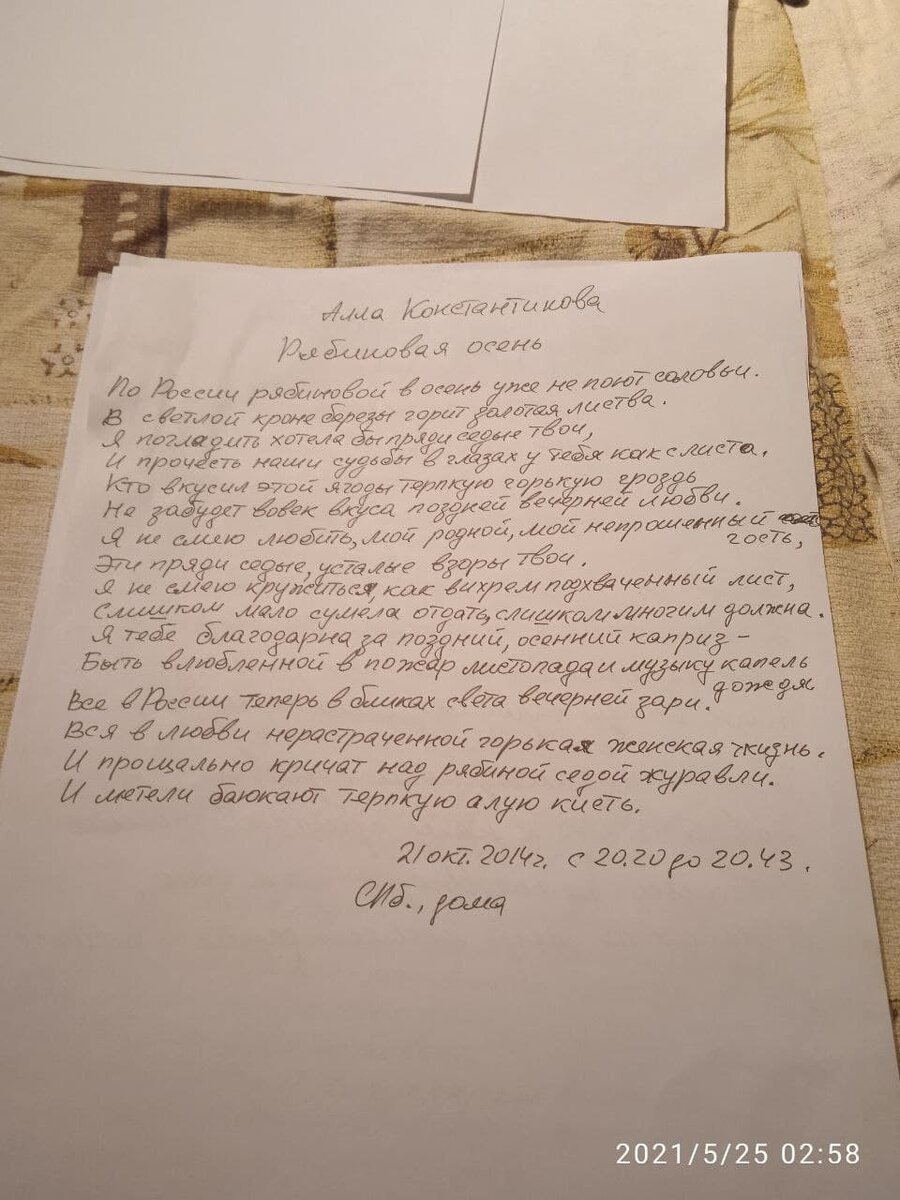 Алла Константинова
Рябиновая осень
По России рябиновой в осень уже не поют соловьи.
В светлой кроне березы горит золотая листва.
Я погладить хотела бы пряди седые твои,
И прочесть наши судьбы в глазах у тебя как с листа.
Кто вкусил этой ягоды терпкую горькую гроздь
Не забудет вовек вкуса поздней вечерней любви.
Я не смею любить, мой родной, мой непрошенный
гость,
Эти пряди седые, усталые взоры твои.
Я не смею кружиться, как вихрем подхваченный лист,
Слишком мало сумела отдать, слишком многим должна.
Я тебе благодарна за поздний, осенний каприз –
Быть влюбленной в пожар листопада и музыку капель
дождя
Все в России теперь в бликах света вечерней зари.
Вся в любви нерастраченной горькая женская жизнь.
И прощально кричат над рябиной седой журавли.
И метели баюкают терпкую алую кисть.
21 окт. 2014г. с 20.20 до 20.43.
СПб., дома
2021/5/25 02:58